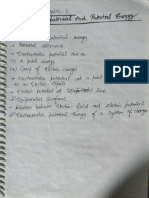 Potential And Potential Energy
potential energy
Potential difference
Electrostatic potential due to
a point charge
Group of electric charges
Electrostatic potential at a point
to a electric dipole
Electric potential at
Equipotential Surfaces
Relation between electric field and electric potential
Electrostatic potential Energy of a System of charges